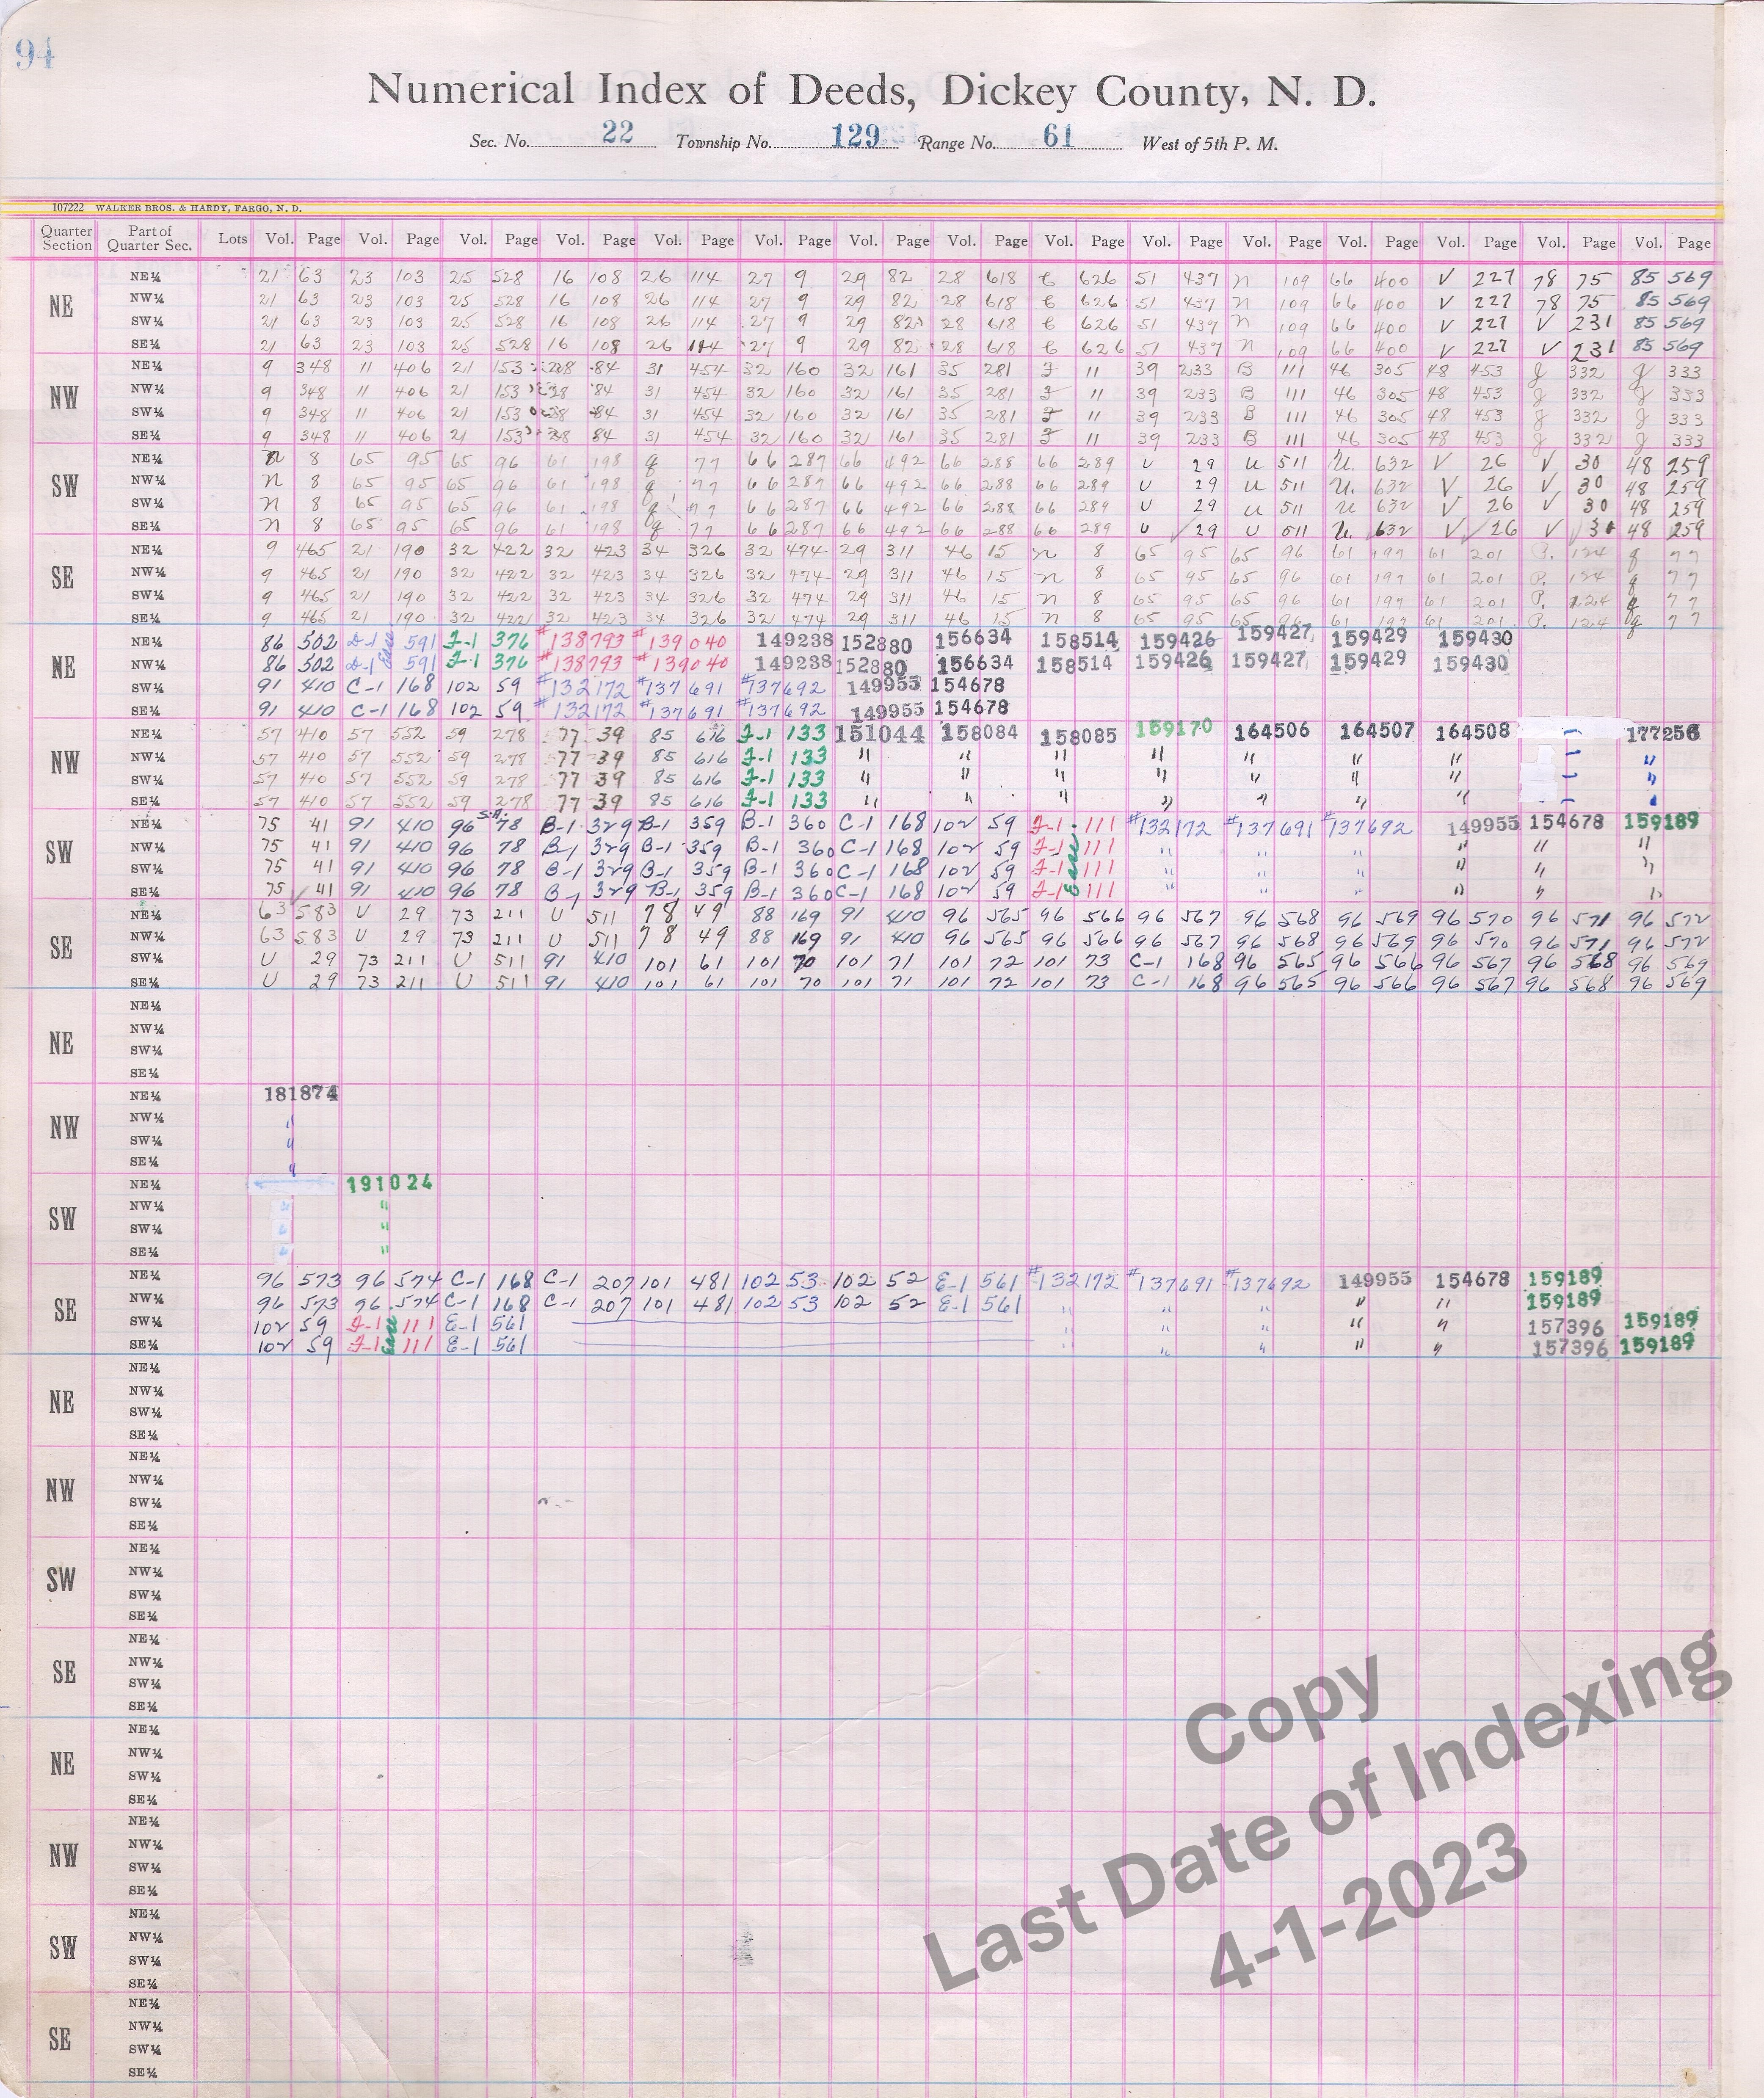 94
Numerical Index of Deeds, Dickey County, N. D.
Sec. No. 22 Township No. 129 Range No. 61 West of 5th P. M.
107222 WALKER BROS. & HARDY, FARGO, N. D.
Quarter Section Part of Quarter Sec. Lots Vol. Page Vol. Page Vol. Page Vol. Page Vol. Page Vol. Page Vol. Page Vol. Page Vol. Page Vol. Page Vol. Page Vol. Page Vol. Page Vol. Page Vol. Page
NE
NE¼ 21 63 23 103 25 528 16 108 26 114 27 9 29 82 28 618 626 51 437 n 109 66 400 V 227 78 75 85 569
NW¼ 21 63 23 103 25 528 16 108 26 114 27 9 29 82 28 618 626 51 437 n 109 66 400 V 227 78 75 85 569
SW¼ 21 63 23 103 25 528 16 108 26 114 27 9 29 82 28 618 626 51 437 n 109 66 400 V 227 V 231 85 569
SE¼ 21 63 23 103 25 528 16 108 26 114 27 9 29 82 28 618 626 51 437 n 109 66 400 V 227 V 231 85 569
NW
NE¼ 9 348 11 406 21 153 84 31 454 32 160 32 161 35 281 11 39 233 B 111 46 305 48 453 g 332 g 333
NW¼ 9 348 11 406 21 153 84 31 454 32 160 32 161 35 281 11 39 233 B 111 46 305 48 453 g 332 g 333
SW¼ 9 348 11 406 21 153 84 31 454 32 160 32 161 35 281 11 39 233 B 111 46 305 48 453 g 332 g 333
SE¼ 9 348 11 406 21 153 84 31 454 32 160 32 161 35 281 11 39 233 B 111 46 305 48 453 g 332 g 333
SW
NE¼ n 8 65 95 65 96 61 198 q 77 66 287 66 492 66 288 66 289 U 29 U 511 U 632 V 26 V 30 48 259
NW¼ n 8 65 95 65 96 61 198 q 77 66 287 66 492 66 288 66 289 U 29 U 511 U 632 V 26 V 30 48 259
SW¼ n 8 65 95 65 96 61 198 q 77 66 287 66 492 66 288 66 289 U 29 U 511 U 632 V 26 V 30 48 259
SE¼ n 8 65 95 65 96 61 198 q 77 66 287 66 492 66 288 66 289 U 29 U 511 U 632 V 26 V 30 48 259
SE
NE¼ 9 465 21 190 32 422 32 423 34 326 32 474 29 311 46 15 n 8 65 95 65 96 61 197 61 201 P. 124 q 77
NW¼ 9 465 21 190 32 422 32 423 34 326 32 474 29 311 46 15 n 8 65 95 65 96 61 197 61 201 P. 124 q 77
SW¼ 9 465 21 190 32 422 32 423 34 326 32 474 29 311 46 15 n 8 65 95 65 96 61 197 61 201 P. 124 q 77
SE¼ 9 465 21 190 32 422 32 423 34 326 32 474 29 311 46 15 n 8 65 95 65 96 61 197 61 201 P. 124 q 77
NE
NE¼ 86 502 D-1 Ease 591 F-1 376 #138793 #139040 149238 152880 156634 158514 159426 159427 159429 159430
NW¼ 86 502 D-1 591 F-1 376 #138793 #139040 149238 152880 156634 158514 159426 159427 159429 159430
SW¼ 91 410 C-1 168 102 59 #132172 #137691 #137692 149955 154678
SE¼ 91 410 C-1 168 102 59 #132172 #137691 #137692 149955 154678
NW
NE¼ 57 410 57 552 59 278 77 39 85 616 F-1 133 151044 158084 158085 159170 164506 164507 164508 177256
NW¼ 57 410 57 552 59 278 77 39 85 616 F-1 133 " " " " " " " "
SW¼ 57 410 57 552 59 278 77 39 85 616 F-1 133 " " " " " " " "
SE¼ 57 410 57 552 59 278 77 39 85 616 F-1 133 " " " " " " " "
SW
NE¼ 75 41 91 410 96 78 B-1 329 B-1 359 B-1 360 C-1 168 102 59 F-1 111 #132172 #137691 #137692 149955 154678 159189
NW¼ 75 41 91 410 96 78 B-1 329 B-1 359 B-1 360 C-1 168 102 59 F-1 111 " " " " " "
SW¼ 75 41 91 410 96 78 B-1 329 B-1 359 B-1 360 C-1 168 102 59 F-1 Ease 111 " " " " " "
SE¼ 75 41 91 410 96 78 B-1 329 B-1 359 B-1 360 C-1 168 102 59 F-1 111 " " " " " "
SE
NE¼ 63 583 U 29 73 211 U 511 78 49 88 169 91 410 96 565 96 566 96 567 96 568 96 569 96 570 96 571 96 572
NW¼ 63 583 U 29 73 211 U 511 78 49 88 169 91 410 96 565 96 566 96 567 96 568 96 569 96 570 96 571 96 572
SW¼ U 29 73 211 U 511 91 410 101 61 101 70 101 71 101 72 101 73 C-1 168 96 565 96 566 96 567 96 568 96 569
SE¼ U 29 73 211 U 511 91 410 101 61 101 70 101 71 101 72 101 73 C-1 168 96 565 96 566 96 567 96 568 96 569
NE
NE¼
NW¼
SW¼
SE¼
NW
NE¼ 181874
NW¼ "
SW¼ "
SE¼ "
SW
NE¼ 191024
NW¼ "
SW¼ "
SE¼ "
SE
NE¼ 96 573 96 574 C-1 168 C-1 207 101 481 102 53 102 52 E-1 561 #132172 #137691 #137692 149955 154678 159189
NW¼ 96 573 96 574 C-1 168 C-1 207 101 481 102 53 102 52 E-1 561 " " " " " 159189
SW¼ 102 59 F-1 Ease 111 E-1 561 " " " " " 157396 159189
SE¼ 102 59 F-1 111 E-1 561 " " " " " 157396 159189
NE
NE¼
NW¼
SW¼
SE¼
NW
NE¼
NW¼
SW¼
SE¼
SW
NE¼
NW¼
SW¼
SE¼
SE
NE¼
NW¼
SW¼
SE¼
NE
NE¼
NW¼
SW¼
SE¼
NW
NE¼
NW¼
SW¼
SE¼
SW
NE¼
NW¼
SW¼
SE¼
SE
NE¼
NW¼
SW¼
SE¼
Copy
Last Date of Indexing
4-1-2023